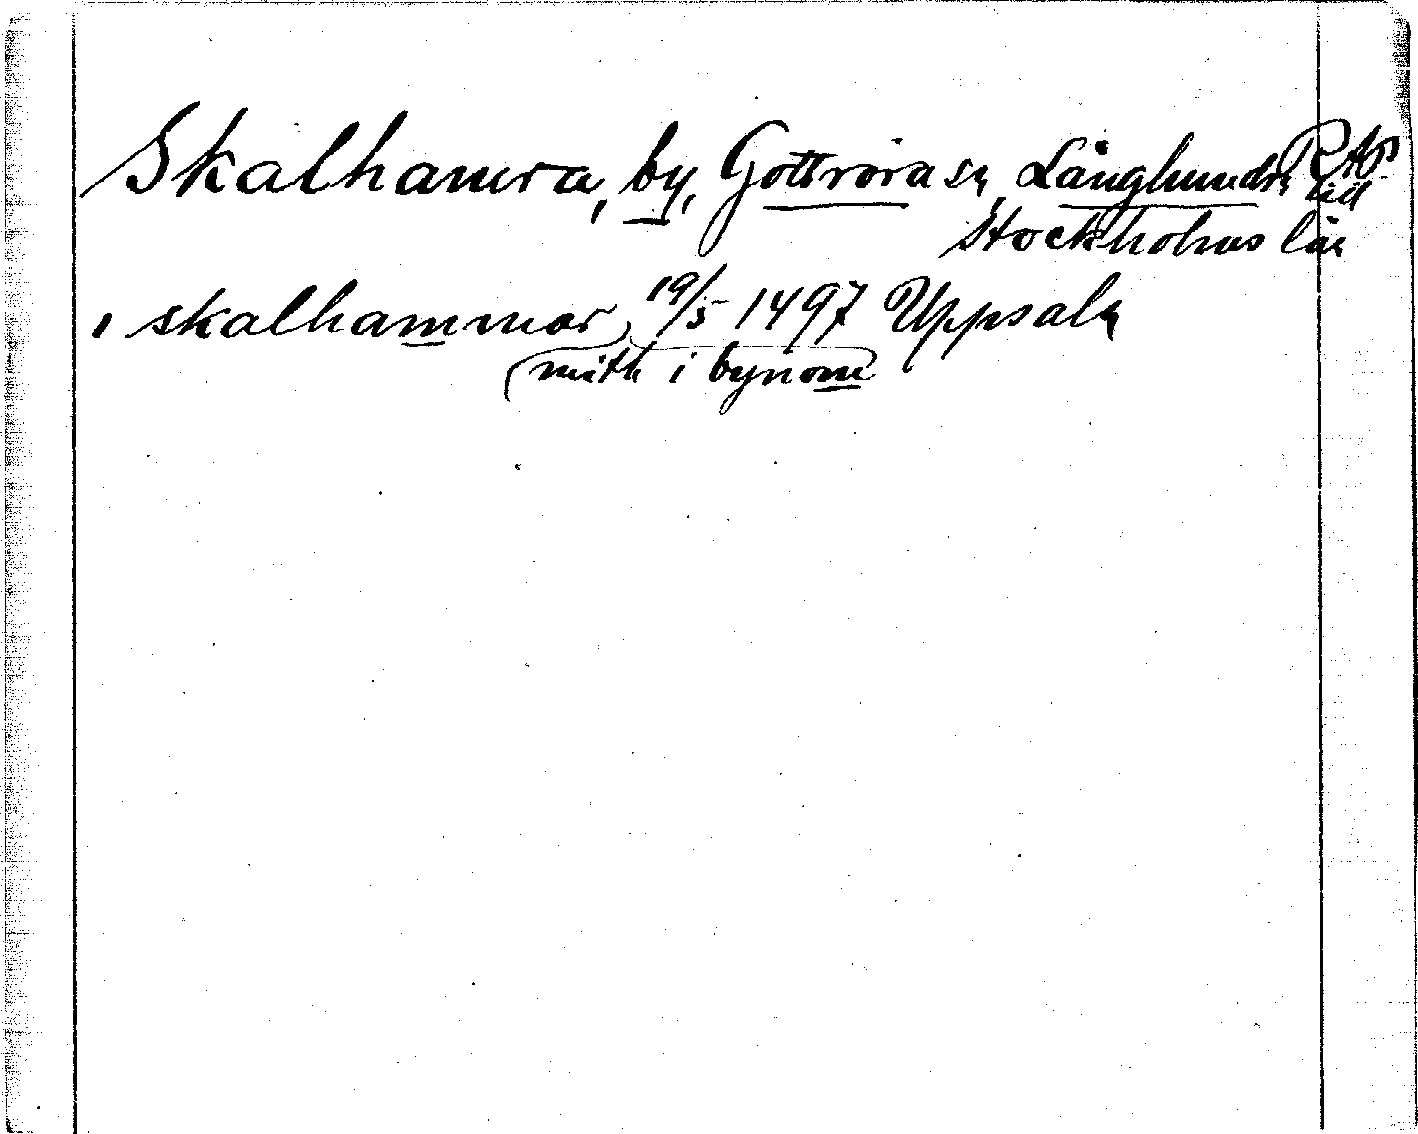 Skalhamra, by, Gottröra sn, Långhundra RAp
hd
Stockholms län
i skalhammor, 19/5 1497 Uppsala
(mith i bynom)